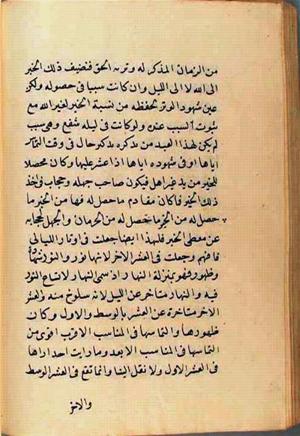 من الزمان المذكر له وتر به الحق فنضيف ذلك الخير
الى الله لا الى الليل وان كانت سببا في حصوله ولكن
عين شهود الوتر تحفظه من نسبة الخير لغير الله مع
ثبوت السبب عنده ولو كانت في ليلة شفع وهى سبب
لم يكن لهذا العبد من يذكره بذكر حال في وقت التماسه
اياها او في شهوده اياها اذا عثر عليها وكان محصلا
للخير من يد غير اهل فيكون صاحب جهله وحجاب في اخذ
ذلك الخير فاكان يقاوم ما حصل له فيها من الخير ما
حصل له من الحرمان والجهل لحجابه
عن معطى الخير فلهذا ايضا جعلت في اوتار الليالى
فافهم وجعلت في العشر الاخر لانها نور والنور شهادة
وظهور فهو بمنزلة النهار اذ سمى النهار لاتساع النور
فيه والنهار متاخر عن الليل لانه مسلوخ منه والعشر
الاخر متاخرة عن العشر الوسط والاول وكان
ظهورها والتماسها في المناسب الاقرب اقوى من
التماسها في المناسب الابعد وما رايت احدا راها
في العشر الاول ولا نقل الينا وانما تقع في العشر الوسط
والاخر